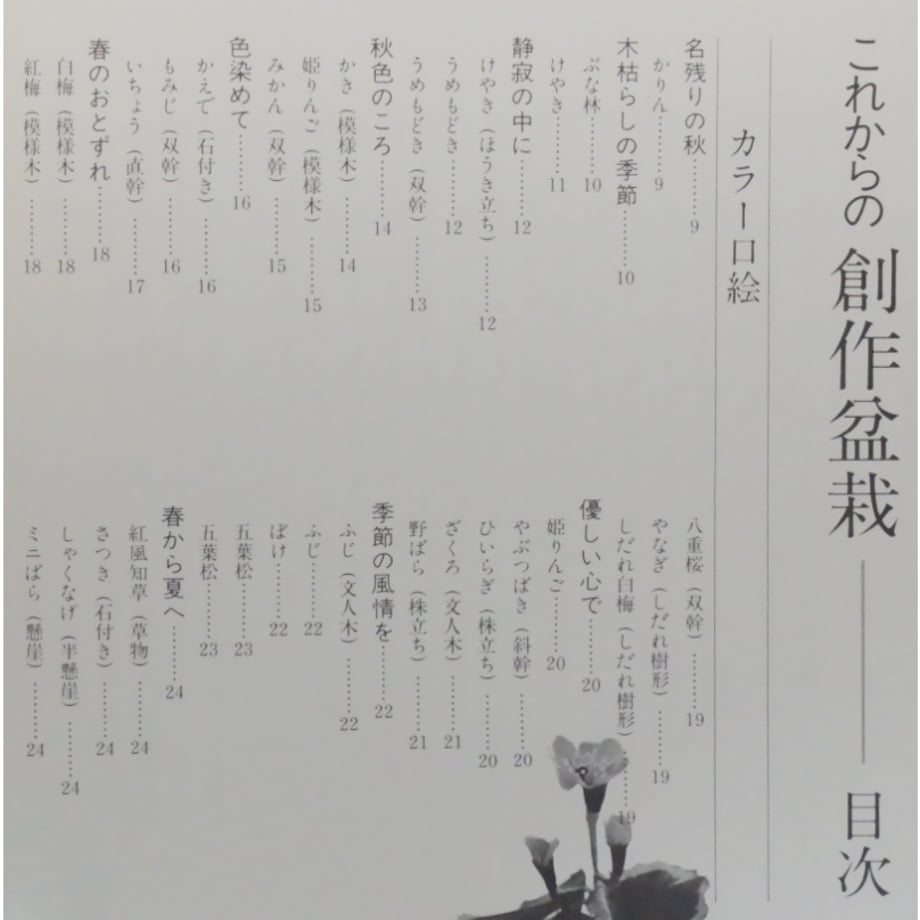 これからの 創作盆栽──目次
カラー口絵
名残りの秋………9
かりん………9
木枯らしの季節………10
ぶな林………10
けやき………11
静寂の中に………12
けやき（ほうき立ち）………12
うめもどき………12
うめもどき（双幹）………13
秋色のころ………14
かき（模様木）………14
姫りんご（模様木）………15
みかん（双幹）………15
色染めて………16
かえで（石付き）………16
もみじ（双幹）………16
いちょう（直幹）………17
春のおとずれ………18
白梅（模様木）………18
紅梅（模様木）………18
八重桜（双幹）………19
やなぎ（しだれ樹形）………19
しだれ白梅（しだれ樹形）………19
優しい心で………20
姫りんご………20
やぶつばき（斜幹）………20
ひいらぎ（株立ち）………20
ざくろ（文人木）………21
野ばら（株立ち）………21
季節の風情を………22
ふじ（文人木）………22
ふじ………22
ぼけ………22
五葉松………23
五葉松………23
春から夏へ………24
紅風知草（草物）………24
さつき（石付き）………24
しゃくなげ（半懸崖）………24
ミニばら（懸崖）………24